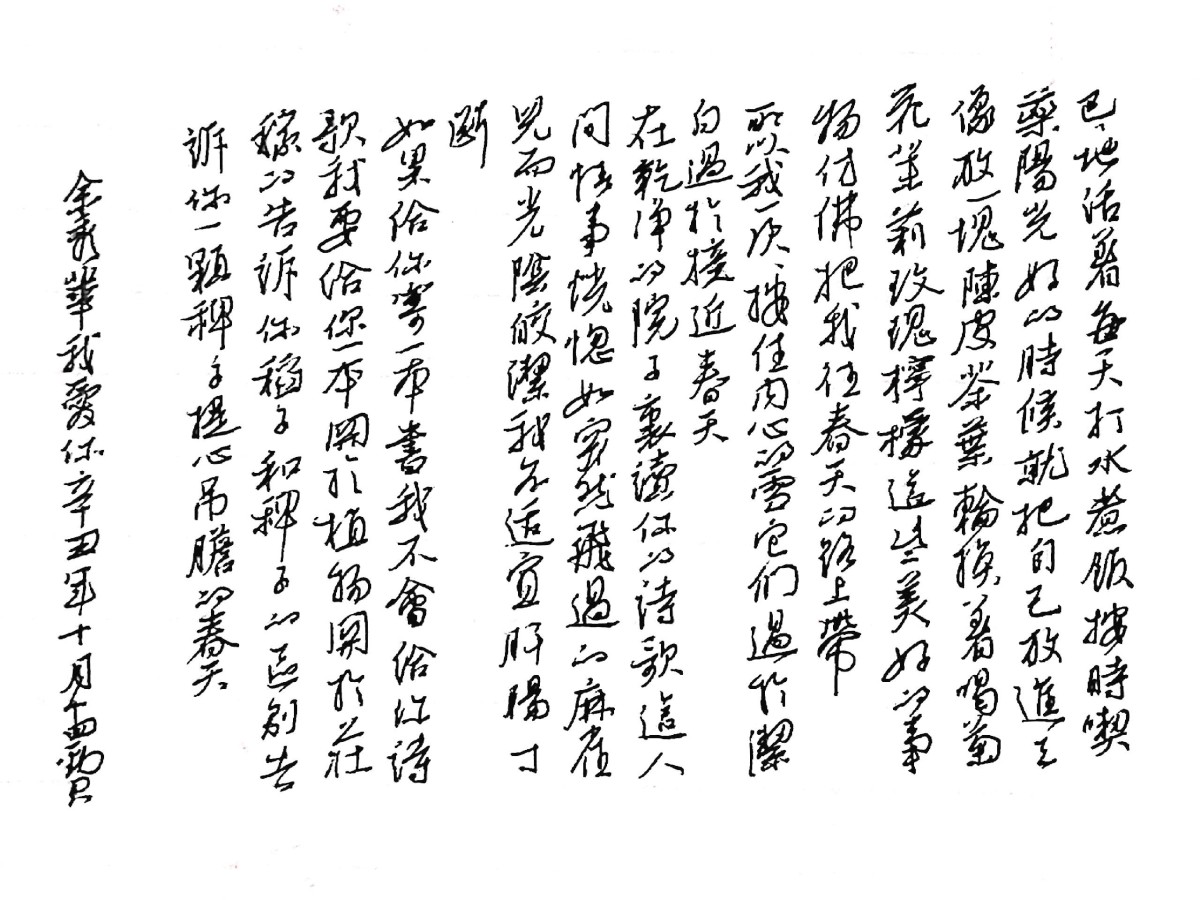 巴巴地活着每天打水煮飯按時喫
藥陽光好的時候就把自己放進去
像放一塊陳皮茶葉輪換着喝菊
花茉莉玫瑰檸檬這些美好的事
物仿佛把我往春天的路上帶
所以我一次次按住内心的雪它們過於潔
白過於接近春天
在乾淨的院子裏讀你的詩歌這人
间情事恍惚如突然飛過的麻雀
兒而光陰皎潔我不适宜肝腸寸
斷
如果给你寄一本書我不會给你詩
歌我要给你一本関於植物関於莊
稼的告訴你稻子和稗子的區别告
訴你一顆稗子提心吊膽的春天
余秀華我愛你辛丑年十月